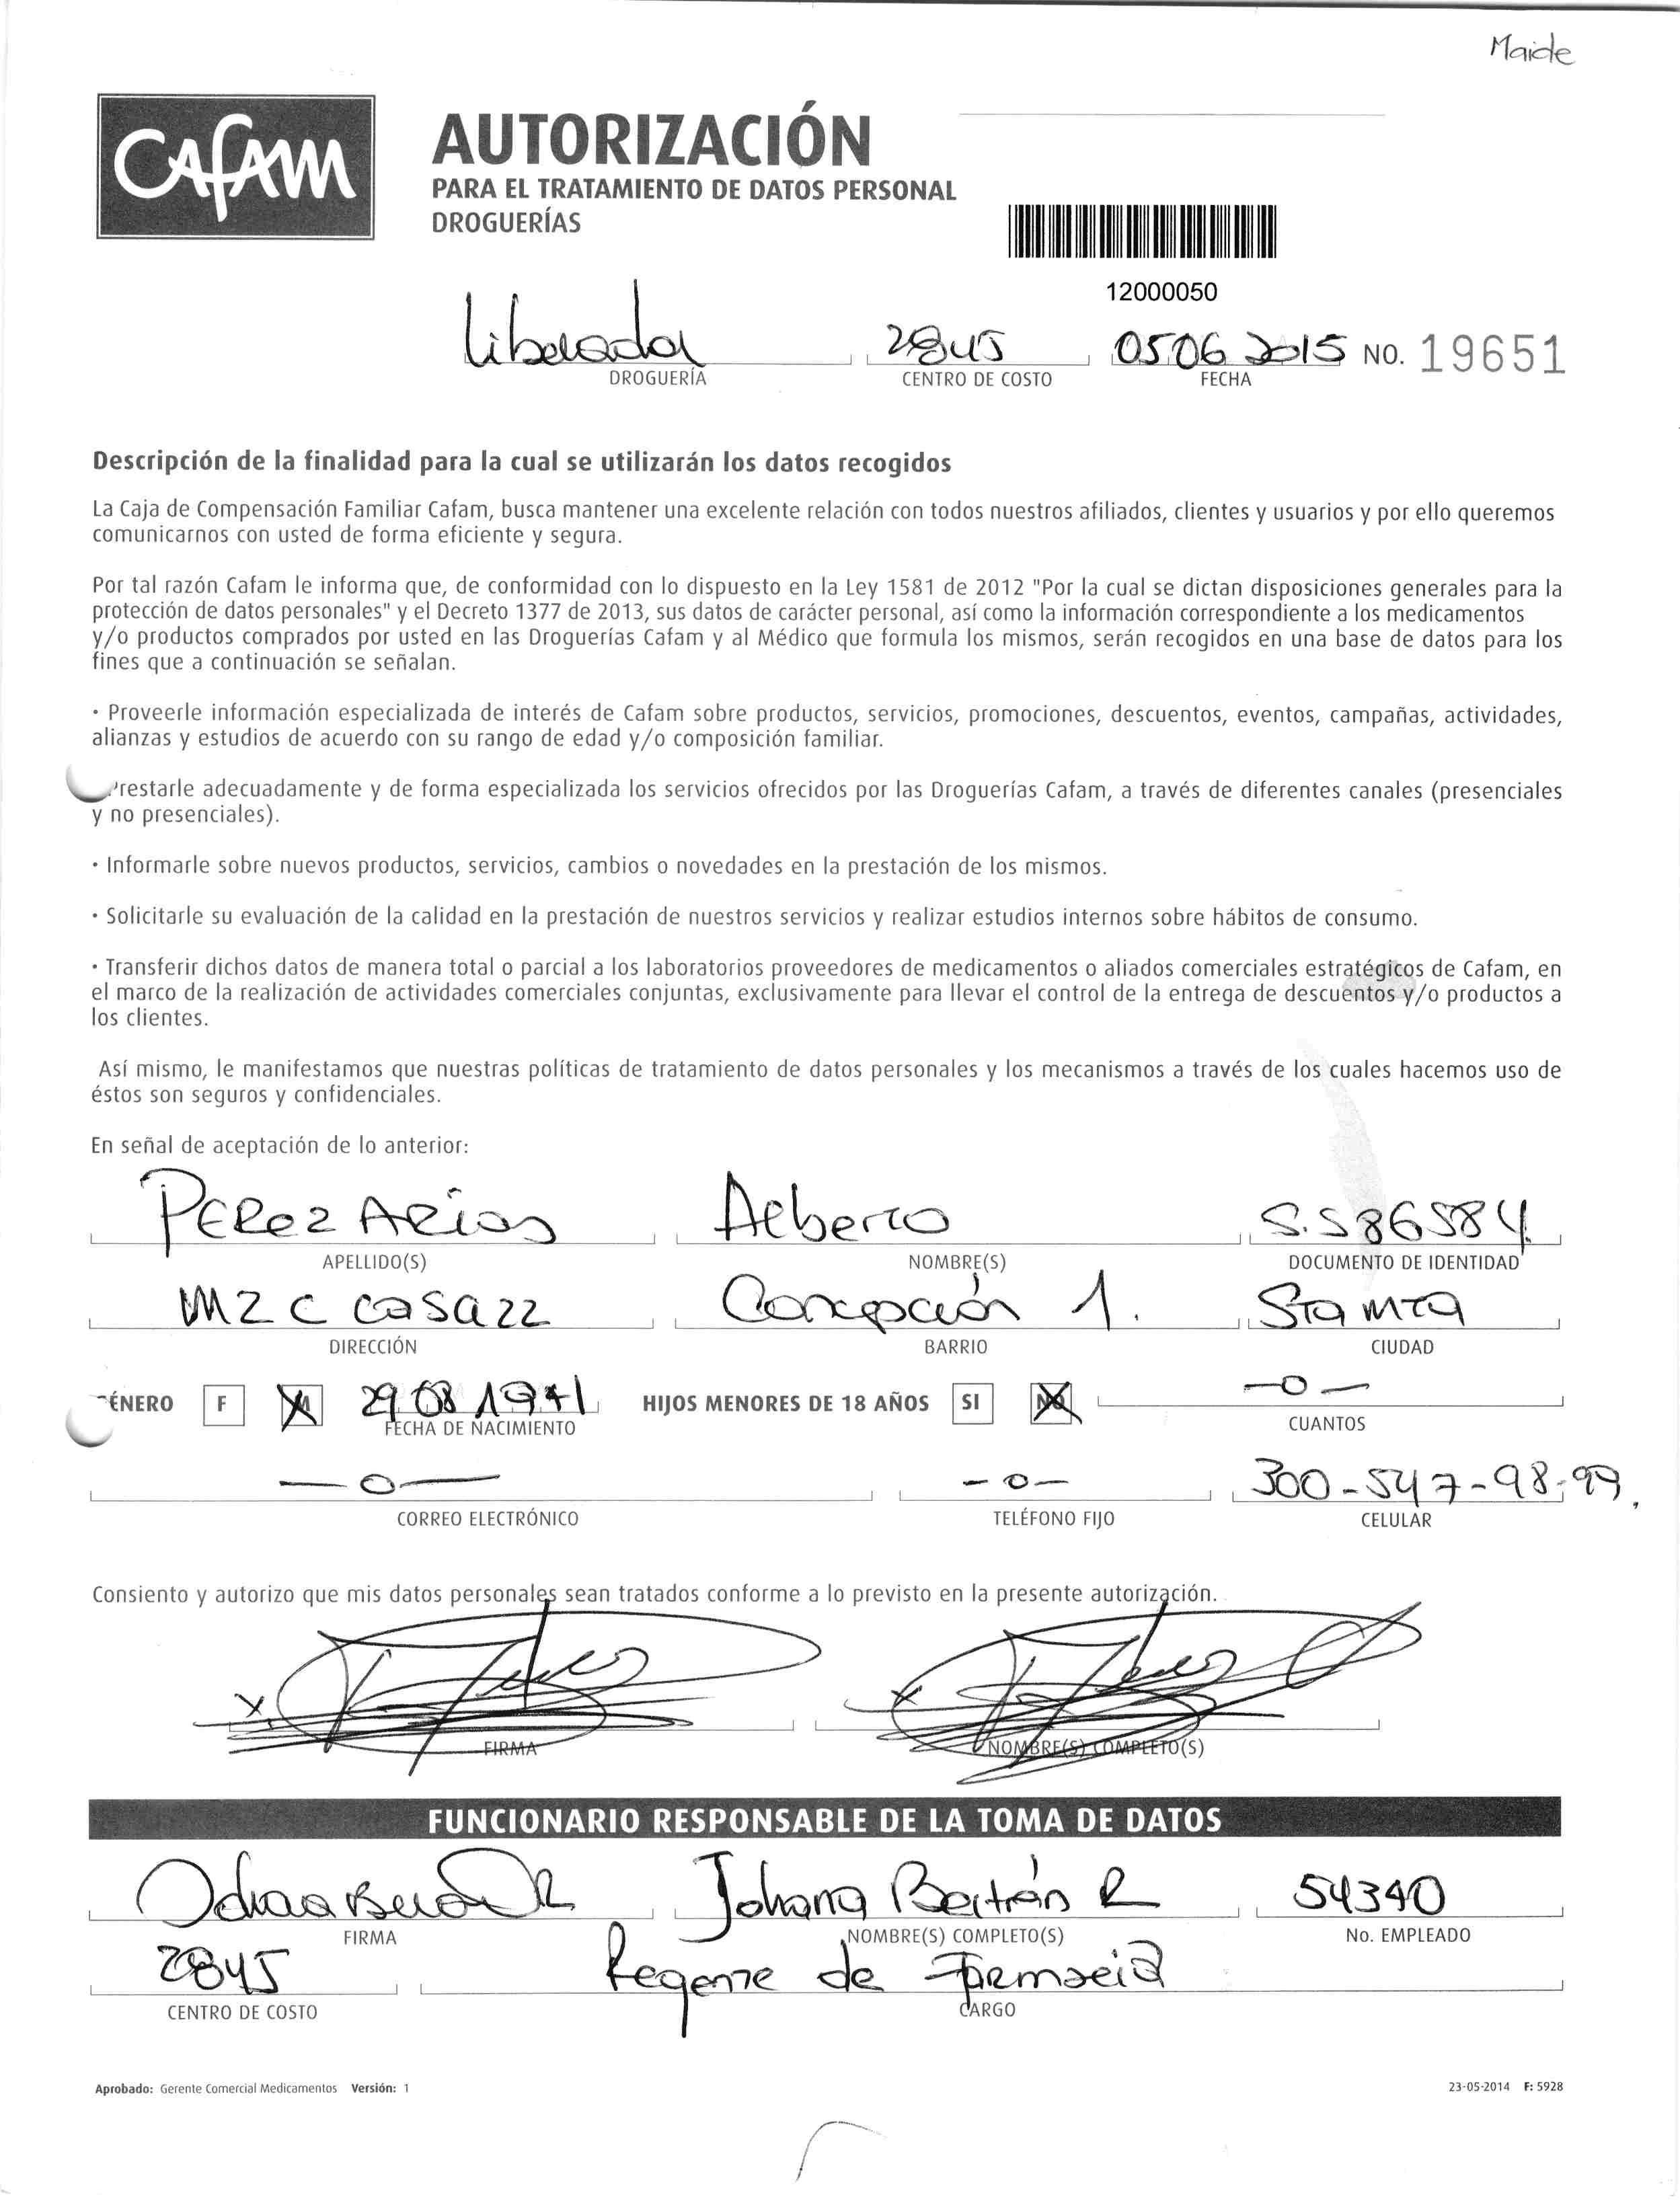 Maide
CAFAM
AUTORIZACIÓN
PARA EL TRATAMIENTO DE DATOS PERSONAL
DROGUERÍAS
12000050
Liberador 2845 05 06 2015 NO. 19651
DROGUERÍA CENTRO DE COSTO FECHA
Descripción de la finalidad para la cual se utilizarán los datos recogidos
La Caja de Compensación Familiar Cafam, busca mantener una excelente relación con todos nuestros afiliados, clientes y usuarios y por ello queremos
comunicarnos con usted de forma eficiente y segura.
Por tal razón Cafam le informa que, de conformidad con lo dispuesto en la Ley 1581 de 2012 "Por la cual se dictan disposiciones generales para la
protección de datos personales" y el Decreto 1377 de 2013, sus datos de carácter personal, así como la información correspondiente a los medicamentos
y/o productos comprados por usted en las Droguerías Cafam y al Médico que formula los mismos, serán recogidos en una base de datos para los
fines que a continuación se señalan.
· Proveerle información especializada de interés de Cafam sobre productos, servicios, promociones, descuentos, eventos, campañas, actividades,
alianzas y estudios de acuerdo con su rango de edad y/o composición familiar.
Prestarle adecuadamente y de forma especializada los servicios ofrecidos por las Droguerías Cafam, a través de diferentes canales (presenciales
y no presenciales).
· Informarle sobre nuevos productos, servicios, cambios o novedades en la prestación de los mismos.
· Solicitarle su evaluación de la calidad en la prestación de nuestros servicios y realizar estudios internos sobre hábitos de consumo.
· Transferir dichos datos de manera total o parcial a los laboratorios proveedores de medicamentos o aliados comerciales estratégicos de Cafam, en
el marco de la realización de actividades comerciales conjuntas, exclusivamente para llevar el control de la entrega de descuentos y/o productos a
los clientes.
Así mismo, le manifestamos que nuestras políticas de tratamiento de datos personales y los mecanismos a través de los cuales hacemos uso de
éstos son seguros y confidenciales.
En señal de aceptación de lo anterior:
PEREZ ARias Alberto 5.586584
APELLIDO(S) NOMBRE(S) DOCUMENTO DE IDENTIDAD
MZ C casa 22 Concepción 1. Sta Mta
DIRECCIÓN BARRIO CIUDAD
GÉNERO F M 29 08 1941 HIJOS MENORES DE 18 AÑOS SI NO —0—
FECHA DE NACIMIENTO CUANTOS
—0— —0— 300-547-98-99.
CORREO ELECTRÓNICO TELÉFONO FIJO CELULAR
Consiento y autorizo que mis datos personales sean tratados conforme a lo previsto en la presente autorización.
X
FIRMA NOMBRE(S) COMPLETO(S)
FUNCIONARIO RESPONSABLE DE LA TOMA DE DATOS
Johana Beltrán R 54340
FIRMA NOMBRE(S) COMPLETO(S) No. EMPLEADO
2845 Regente de Farmacia
CENTRO DE COSTO CARGO
Aprobado: Gerente Comercial Medicamentos Versión: 1 23-05-2014 F: 5928